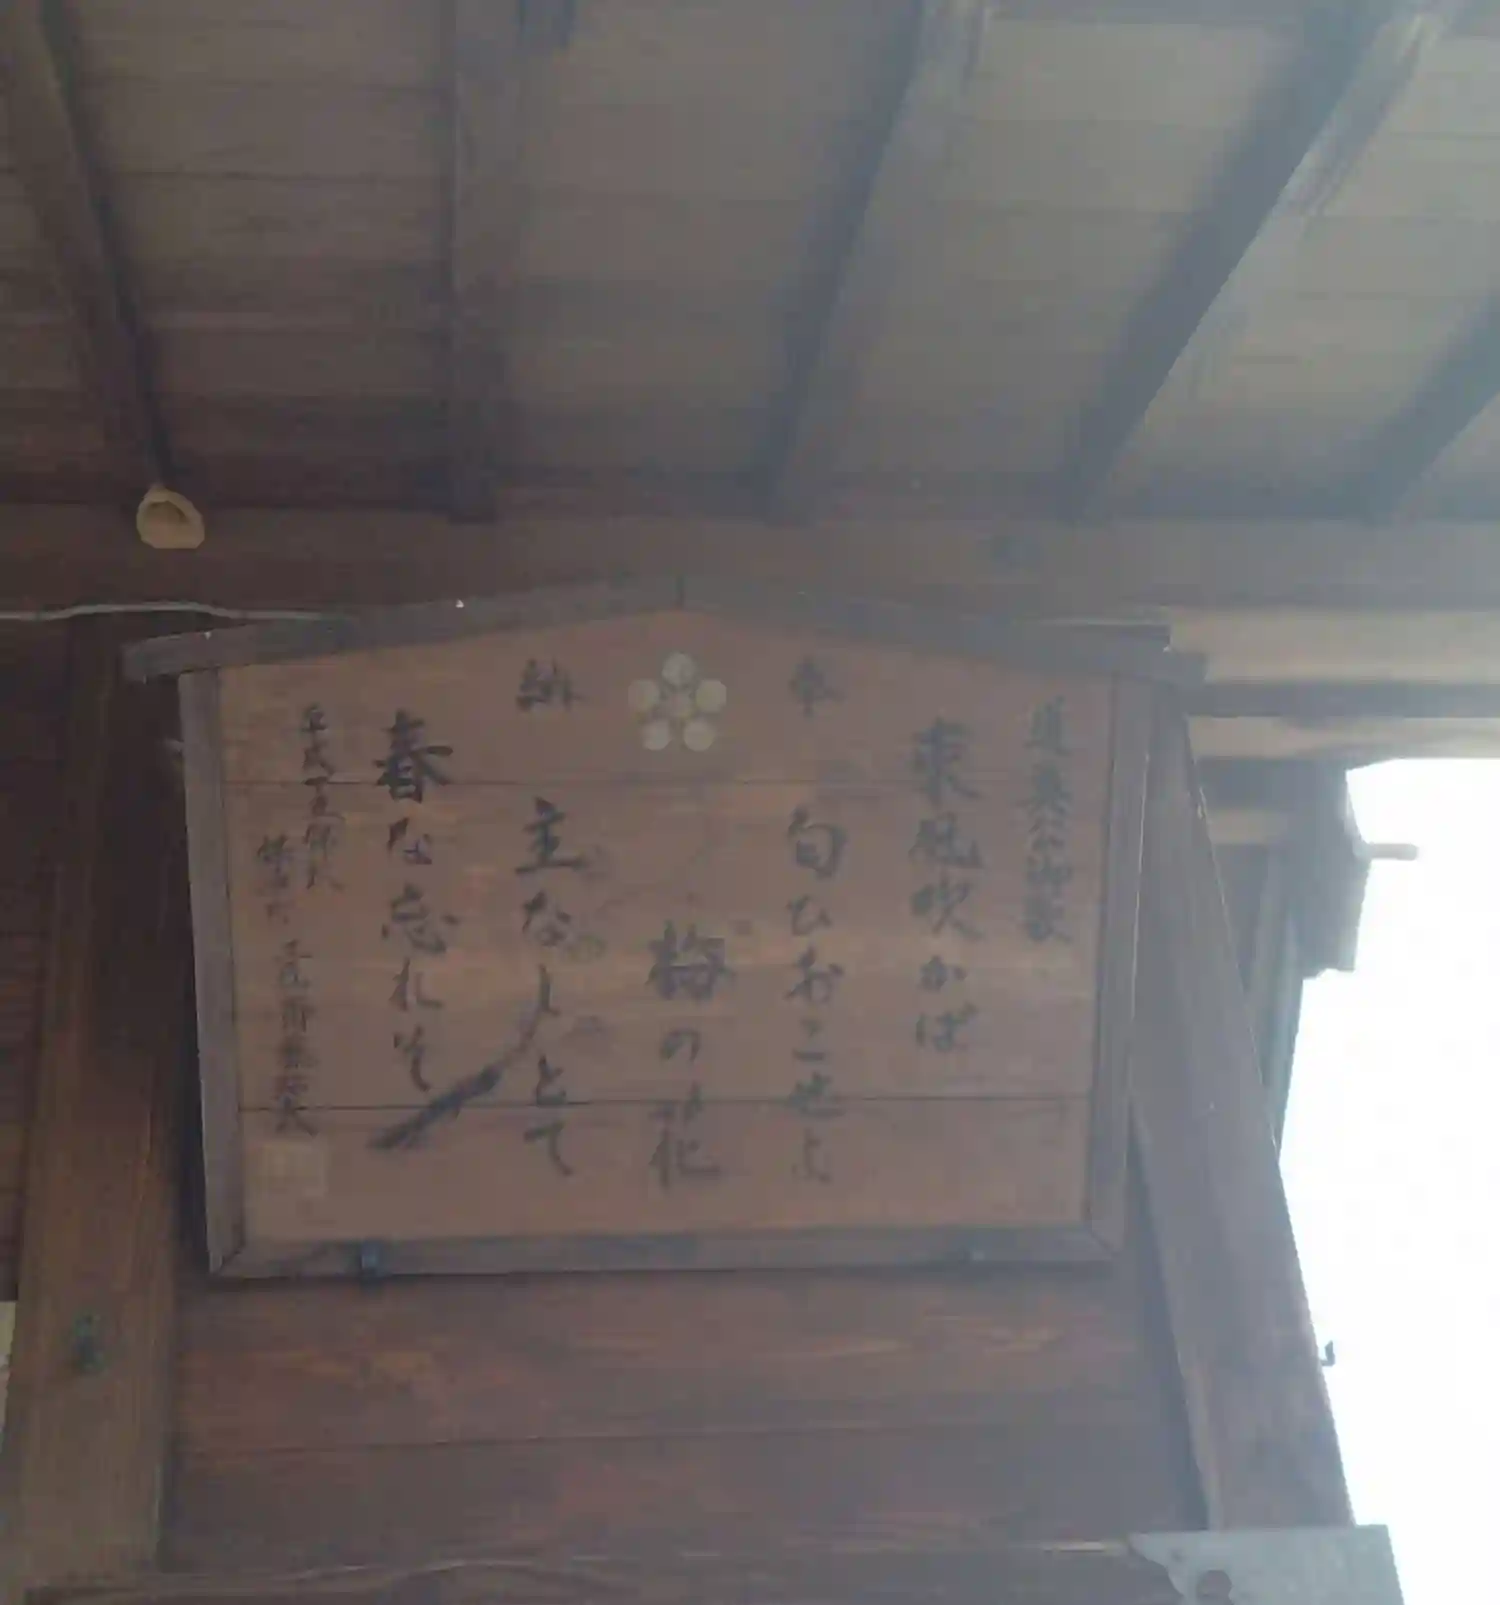 道真公御歌
東風吹かば
奉
匂ひおこせよ
梅の花
納
主なしとて
春な忘れそ
平成十五年